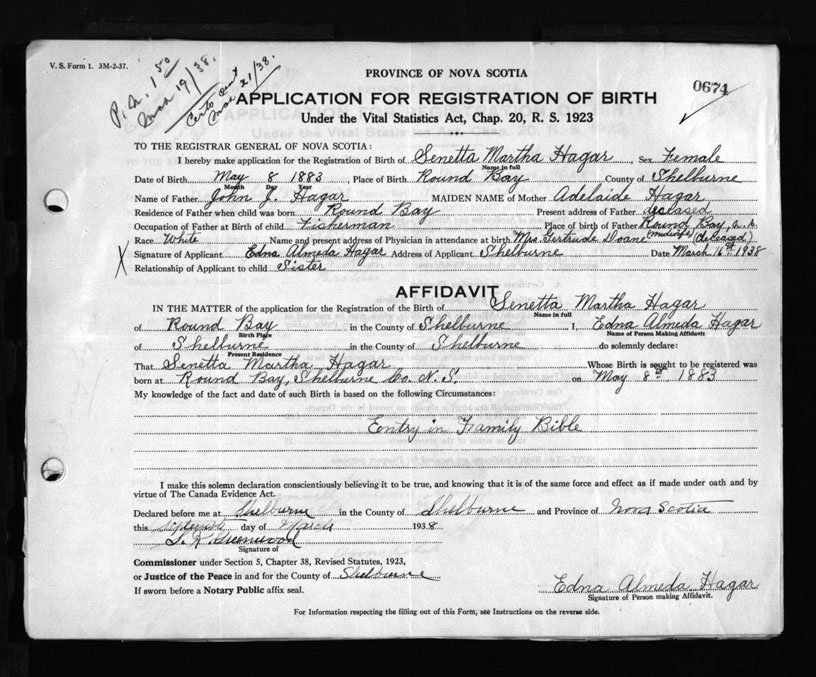 V. S. Form 1. 3M-2-37.
P.N. 1 50
Mar 19/38.
Certo sent
Mar 21/38.
0674
PROVINCE OF NOVA SCOTIA
APPLICATION FOR REGISTRATION OF BIRTH
Under the Vital Statistics Act, Chap. 20, R. S. 1923
TO THE REGISTRAR GENERAL OF NOVA SCOTIA:
I hereby make application for the Registration of Birth of Senetta Martha Hagar, Sex Female
Name in full
Date of Birth May 8 1883, Place of Birth Round Bay County of Shelburne
Month Day Year
Name of Father John J. Hagar MAIDEN NAME of Mother Adelaide Hagar
Residence of Father when child was born Round Bay Present address of Father deceased
Occupation of Father at Birth of child Fisherman Place of birth of Father Round Bay, N.S.
Race White Name and present address of Physician in attendance at birth Mrs. Gertrude Doane (midwife) (deceased)
X Signature of Applicant Edna Almeda Hagar Address of Applicant Shelburne Date March 16th 1938
Relationship of Applicant to child Sister
AFFIDAVIT
IN THE MATTER of the application for the Registration of the Birth of Senetta Martha Hagar
Name in full
of Round Bay in the County of Shelburne I, Edna Almeda Hagar
Birth Place Name of Person Making Affidavit
of Shelburne in the County of Shelburne do solemnly declare:
Present Residence
That Senetta Martha Hagar Whose Birth is sought to be registered was
born at Round Bay, Shelburne Co. N.S. on May 8th 1883
My knowledge of the fact and date of such Birth is based on the following Circumstances:
Entry in Family Bible
I make this solemn declaration conscientiously believing it to be true, and knowing that it is of the same force and effect as if made under oath and by
virtue of The Canada Evidence Act.
Declared before me at Shelburne in the County of Shelburne and Province of Nova Scotia
this Sixteenth day of March 1938
Greenwood
Signature of
Commissioner under Section 5, Chapter 38, Revised Statutes, 1923,
or Justice of the Peace in and for the County of Shelburne
If sworn before a Notary Public affix seal.
Edna Almeda Hagar
Signature of Person making Affidavit.
For Information respecting the filling out of this Form, see Instructions on the reverse side.